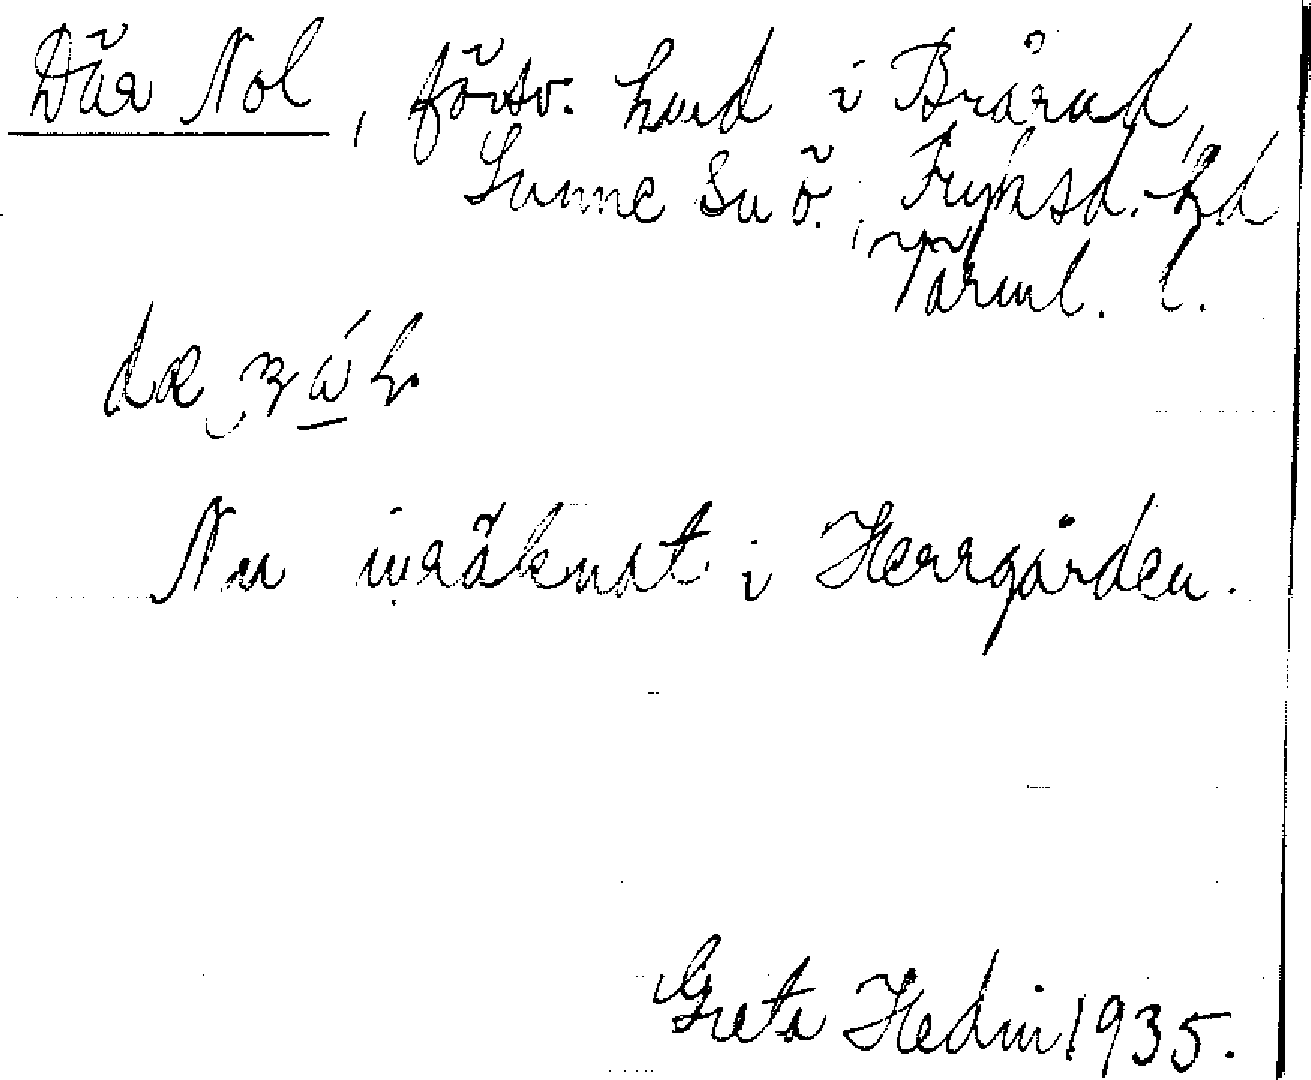 Där Nol, försv. hmd i Brårud,
Sunne sn ö., Fryksd. hd
Värml. l.
Nu inräknat i Herrgården.
Greta Hedin 1935.